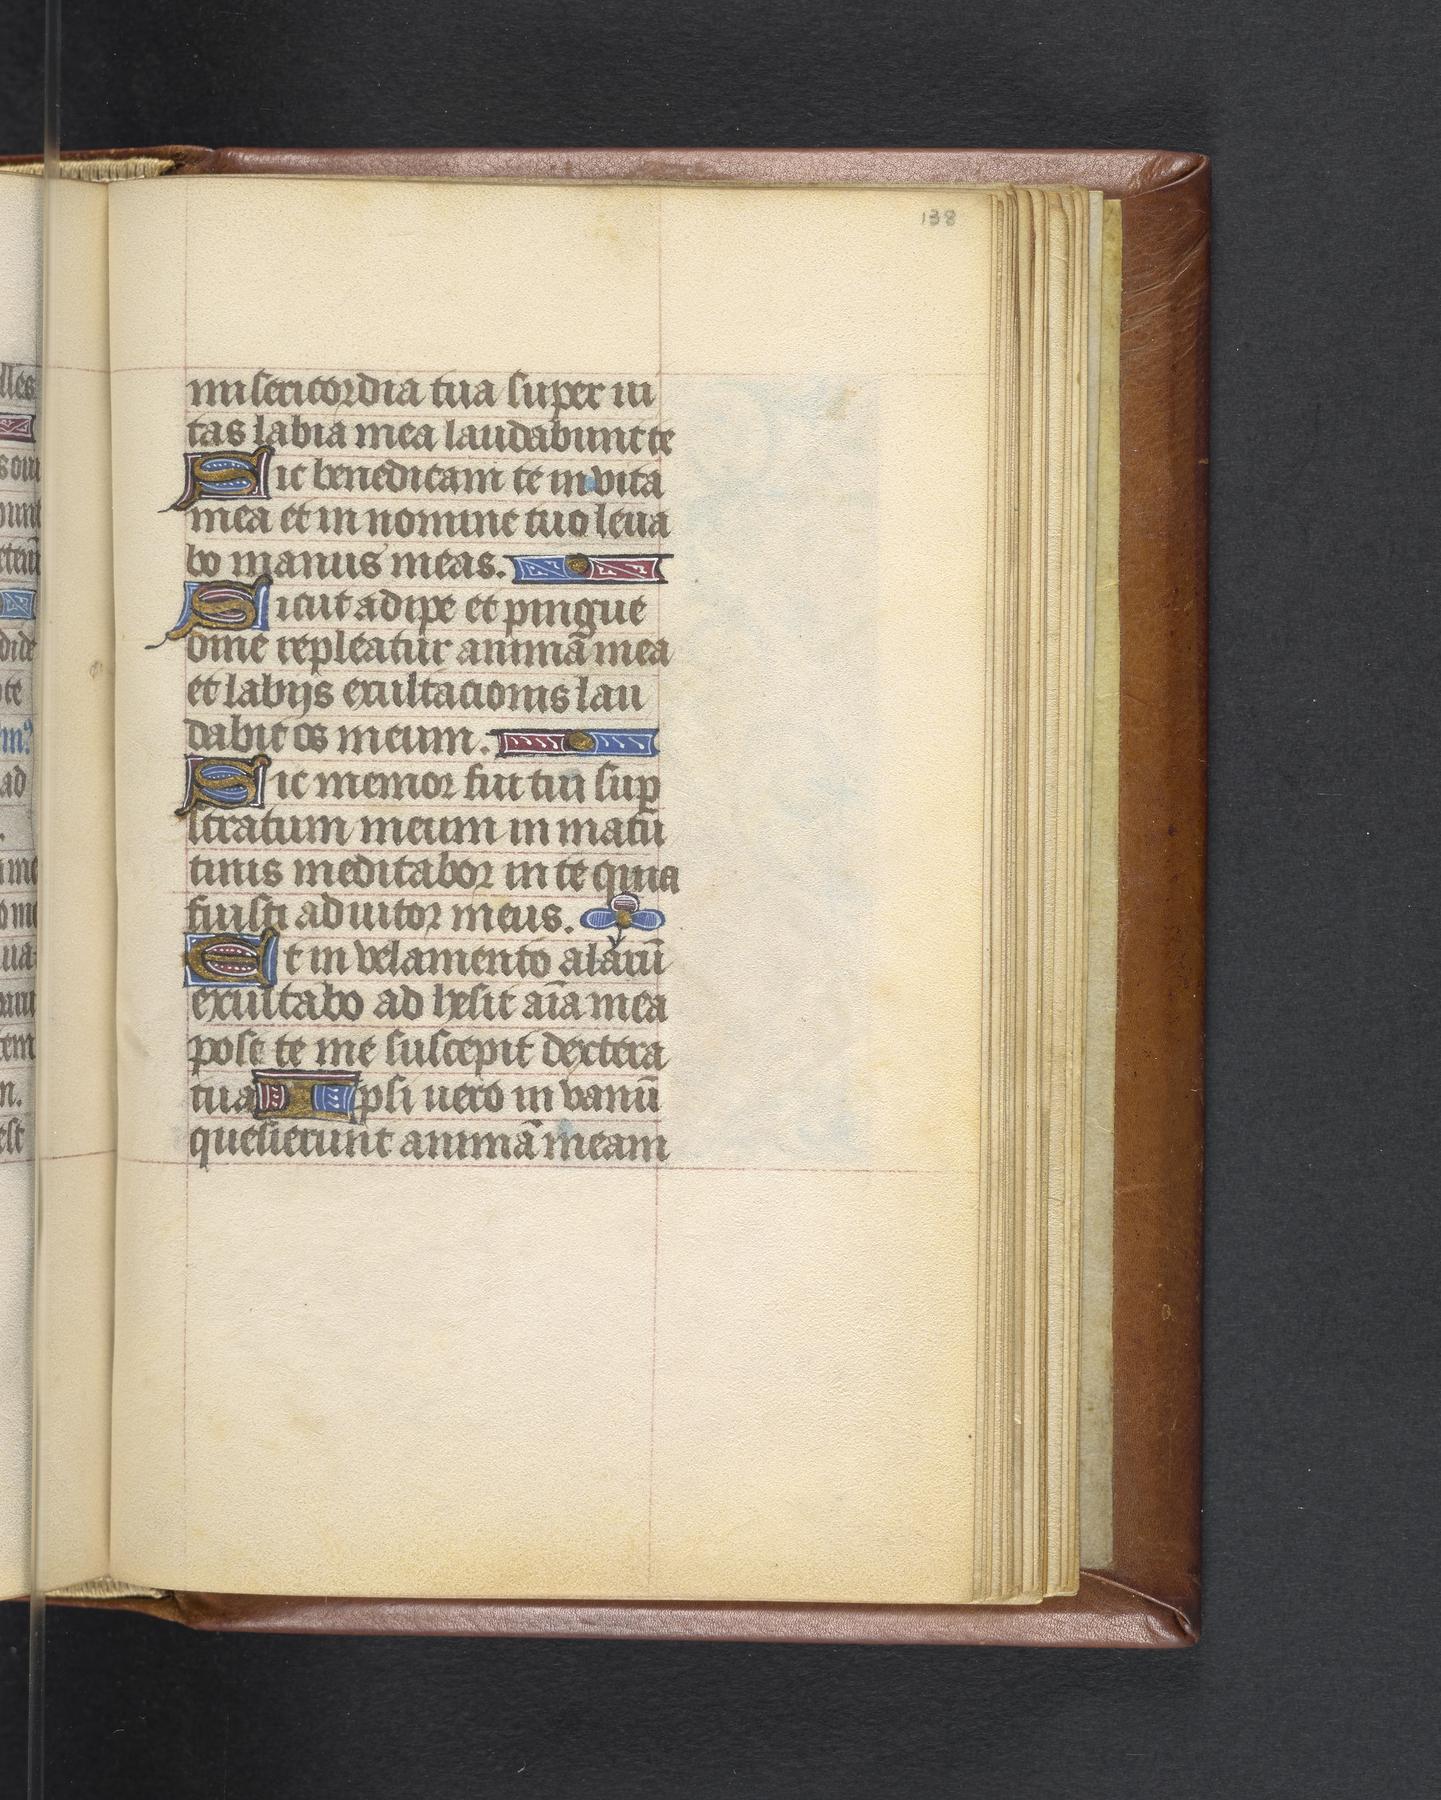 138
misericordia tua super ui
tas labia mea laudabunt te
Sic benedicam te in vita
mea et in nomine tuo leua
bo manus meas.
Sicut adipe et pingue
dine repleatur animā mea
et labijs exultacionis lau
dabit os meum.
Sic memor fui tui sup̲
stratum meum in matu
tinis meditabor in te quia
fuisti adiutor meus.
Et in velamento alaꝛū
exultabo ad hesit aīa mea
post te me suscepit dextera
tua Ipsi uero in vanū
quesierunt animā meam